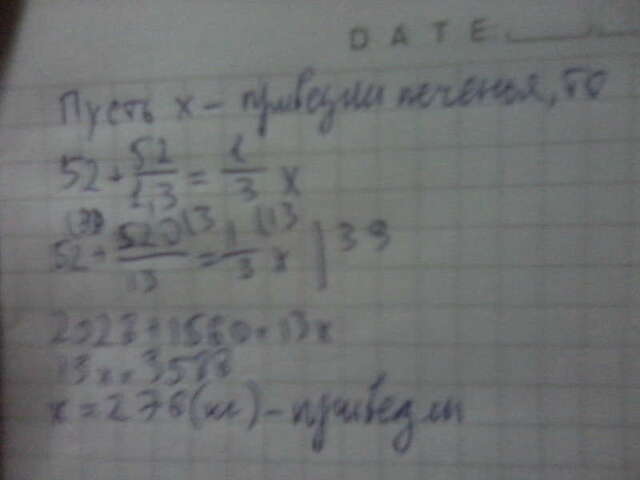 DATE
Пусть х - привезли печенья, то
52 + 52/1,3 = 1/3 х
52 + 520/13 = 1/3 х | 39
2028 + 1560 = 13х
13х = 3588
х = 276 (кг) - привезли